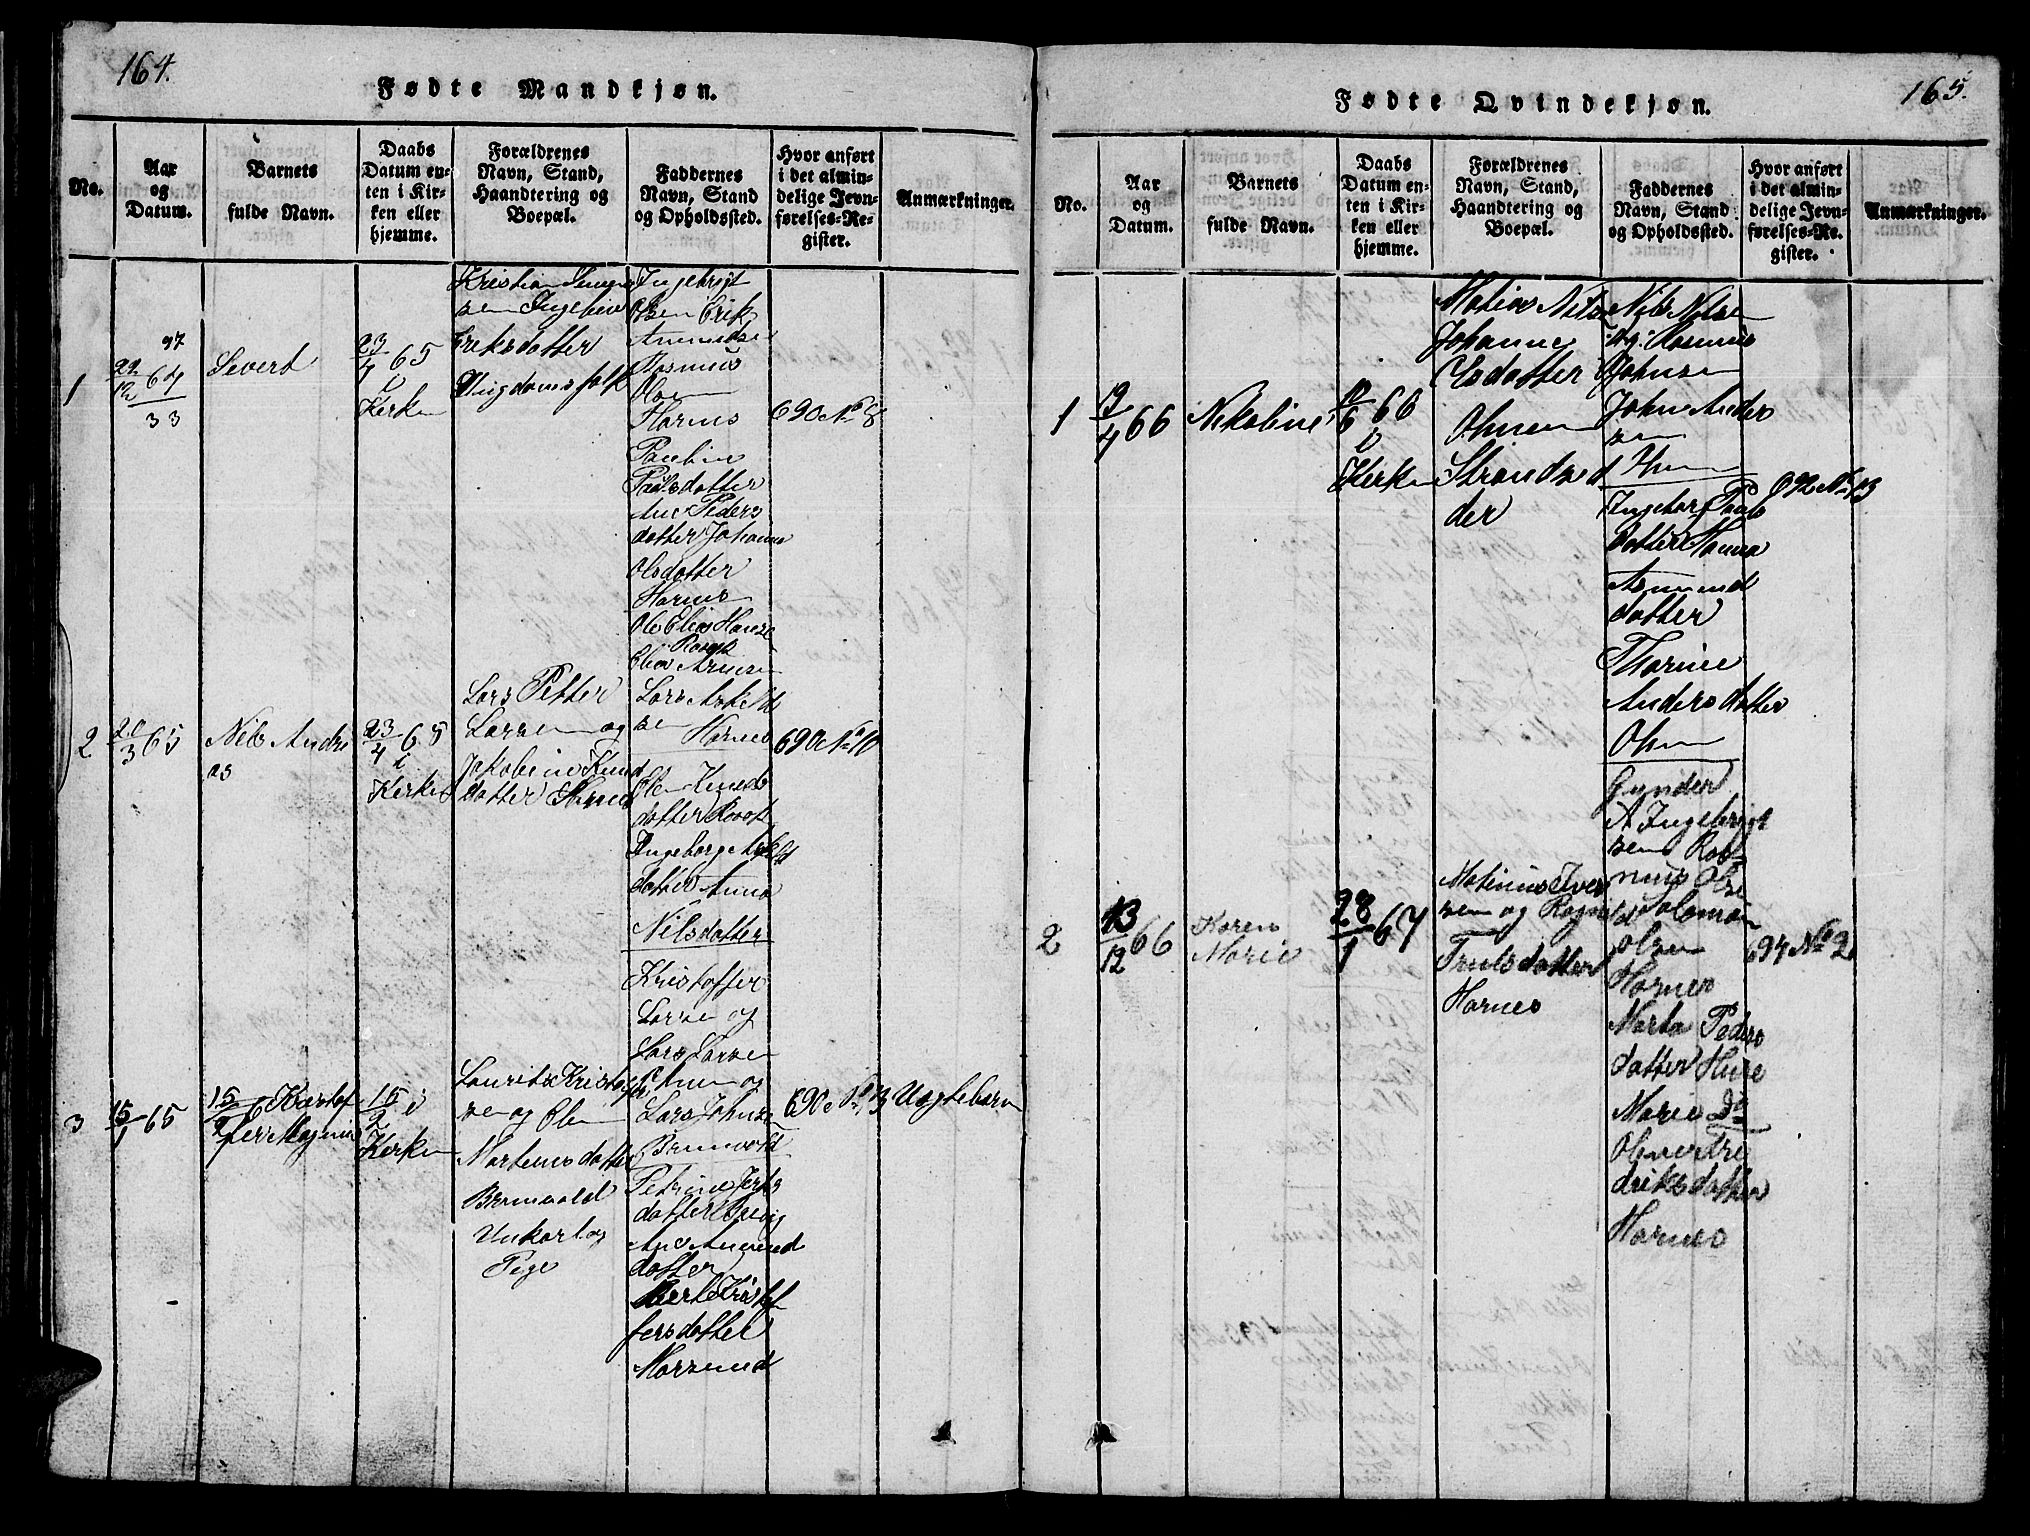 164.
Fødte Mandkjøn.
No.
Aar
og
Datum.
Barnets
fulde Navn.
Daabs
Datum en-
ten i Kir-
ken eller
hjemme.
Forældrenes
Navn, Stand,
Haandtering og
Boepæl.
Faddernes
Navn, Stand
og Opholdssted.
Hvor anført
i det almin-
delige Jevn-
førelses-Re-
gister.
Anmærkninger.
1
97
22/12 64
33
Severd
23/4 65
i
Kerken
Kristian
sen Ingebor
Eriksdatter
Ungdomsfolk
Ingebrigt
Olsen Erik
Amundse
Rasmus
Olsen
Harnes
Pauline
Polsdatter
Ane Peders
datter Johanna
Olsdatter
Harnes
690 No 8
2
20/3 65
Nils Andri
as
23/4 65
i
Kerken
Lars Petter
Larsen og
Jakobine Knud
datter Harnes
Ole Elias Hanse
Elias Arnese
Lars Askeld
sen Harnes
Olen Knuds
datter
Ingeborg Askeld
datter Anna
Nilsdatter
690 No 10
3
15/1 65
Kristof
fer Magnus
15/2 i
Kerken
Laurits Kristoffer
sen og Olen
Martensdatter
Brunvold
Unkarl og
Pige
Kristoffer
Larsen og
Lars Larsen
Ohnen og
Lars Johnsen
Brunvold
Petrine
datter
Ane Amund
datter
Berte Kristof
fersdatter
Harsund
690 No 13
Uægtebarn
165.
Fødte Qvindekjøn.
No.
Aar
og
Datum.
Barnets
fulde Navn.
Daabs
Datum en-
ten i Kir-
ken eller
hjemme.
Forældrenes
Navn, Stand,
Haandtering og
Boepæl.
Faddernes
Navn, Stand
og Opholdssted.
Hvor anført
i det almin-
delige Jevn-
førelses-Re-
gister.
Anmærkninger.
1
9/4 66
Nikoline
10/6 66
i
Kerken
Matias Nilsen
Johanne
Olsdatter
Ohnen
Strandsid
der
Nils Nilsen
og Rasmus
Johnsen
John Ander
sen
Ingebor Pouls
datter Hanna
Asmund
datter
Thorine
Andersdatter
Ohnen
692 No 13
2
13/12 66
Karen
Marie
28/1 67
Matinus Iver
sen og Ragnild
Trulsdatter
Harnes
Gunder
A Ingebrigt
sen Ras
mus Olsen
Salamon
Olsen
Harnes
Marta Peders
datter
Marie Do
Oline Fre
driksdatter
Harnes
694 No 2